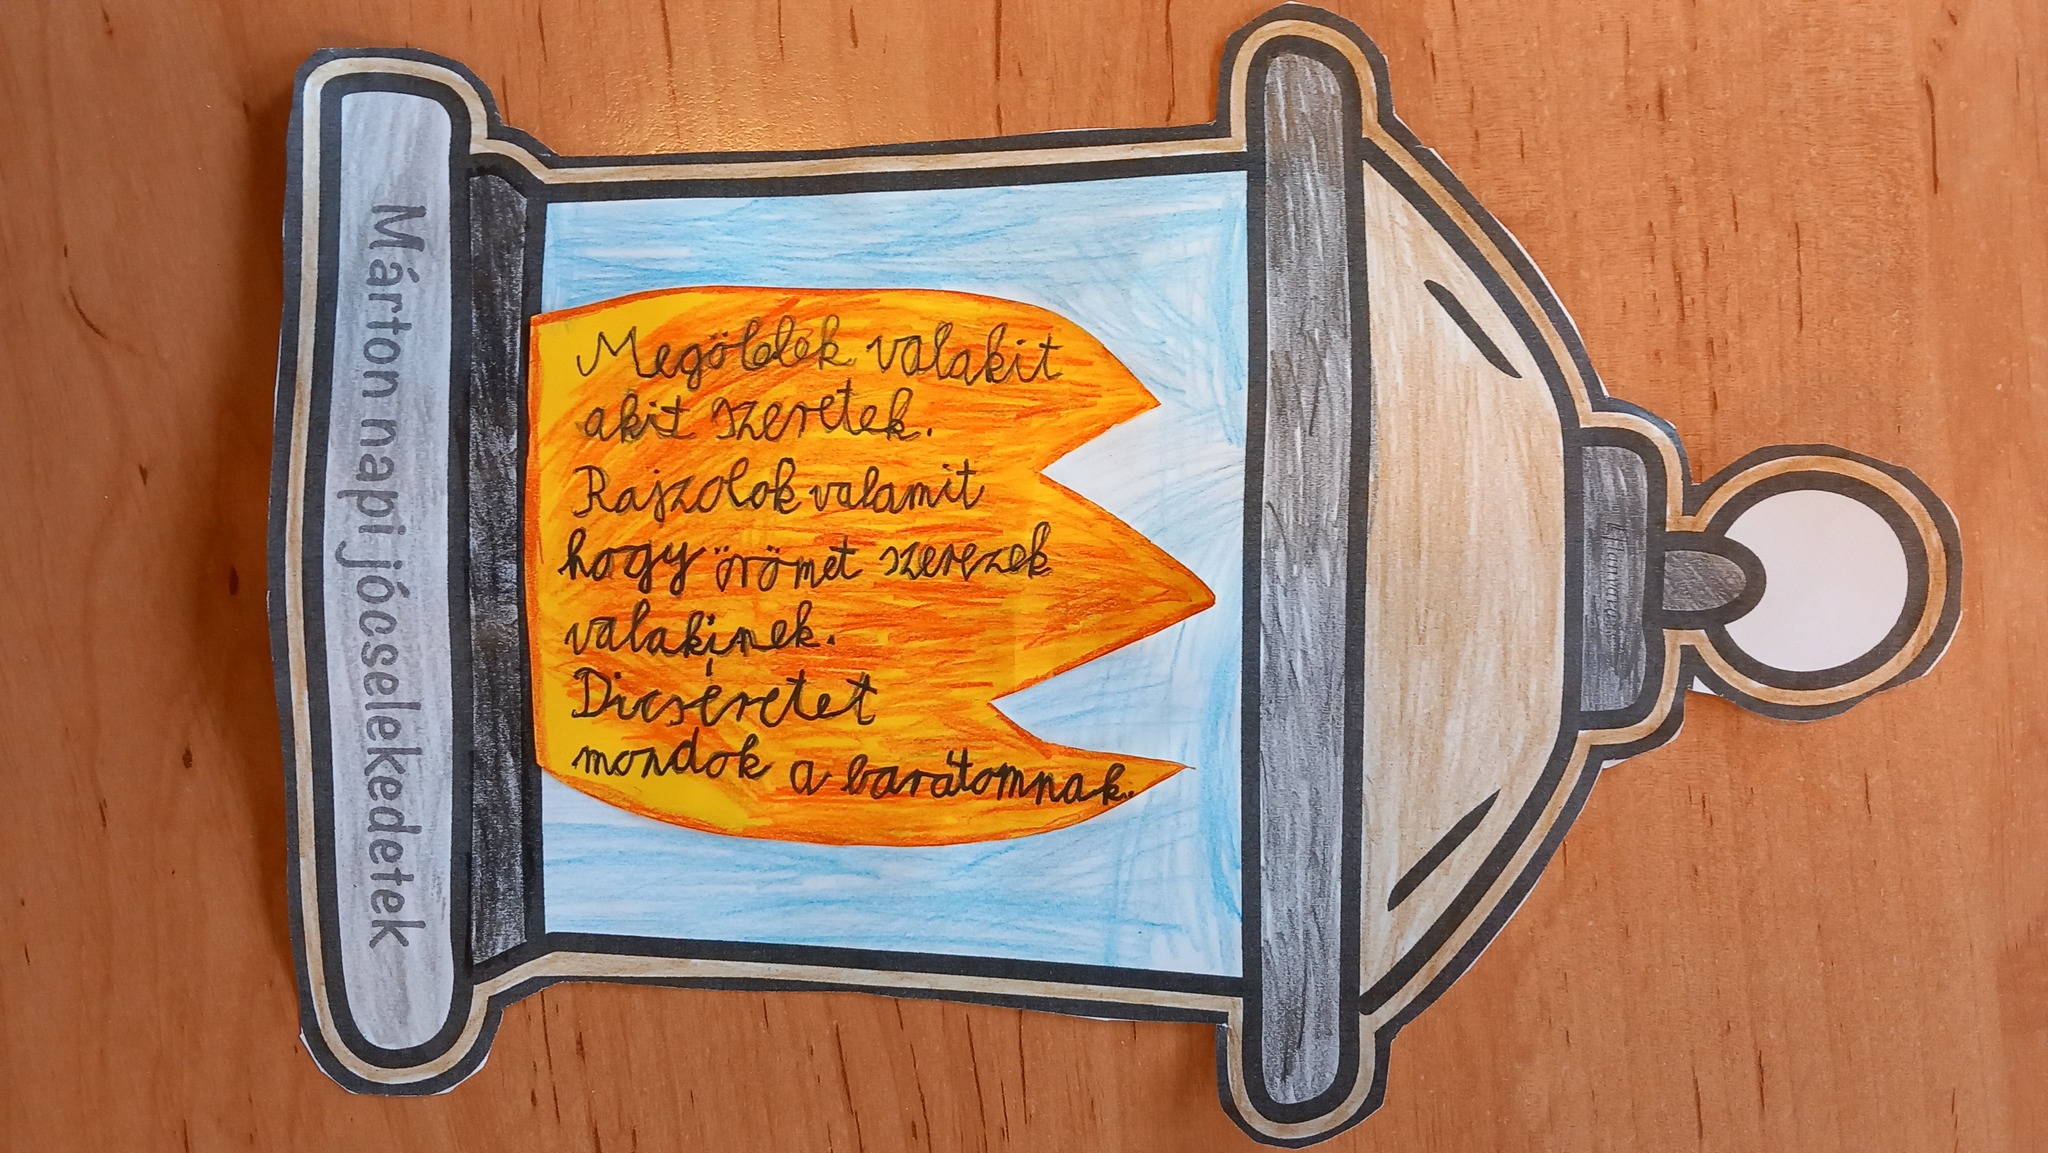 Márton napi jócselekedetek
Megölelek valakit
akit szeretek.
Rajzolok valamit
hogy örömet szerezek
valakinek.
Dicséretet
mondok a barátomnak.